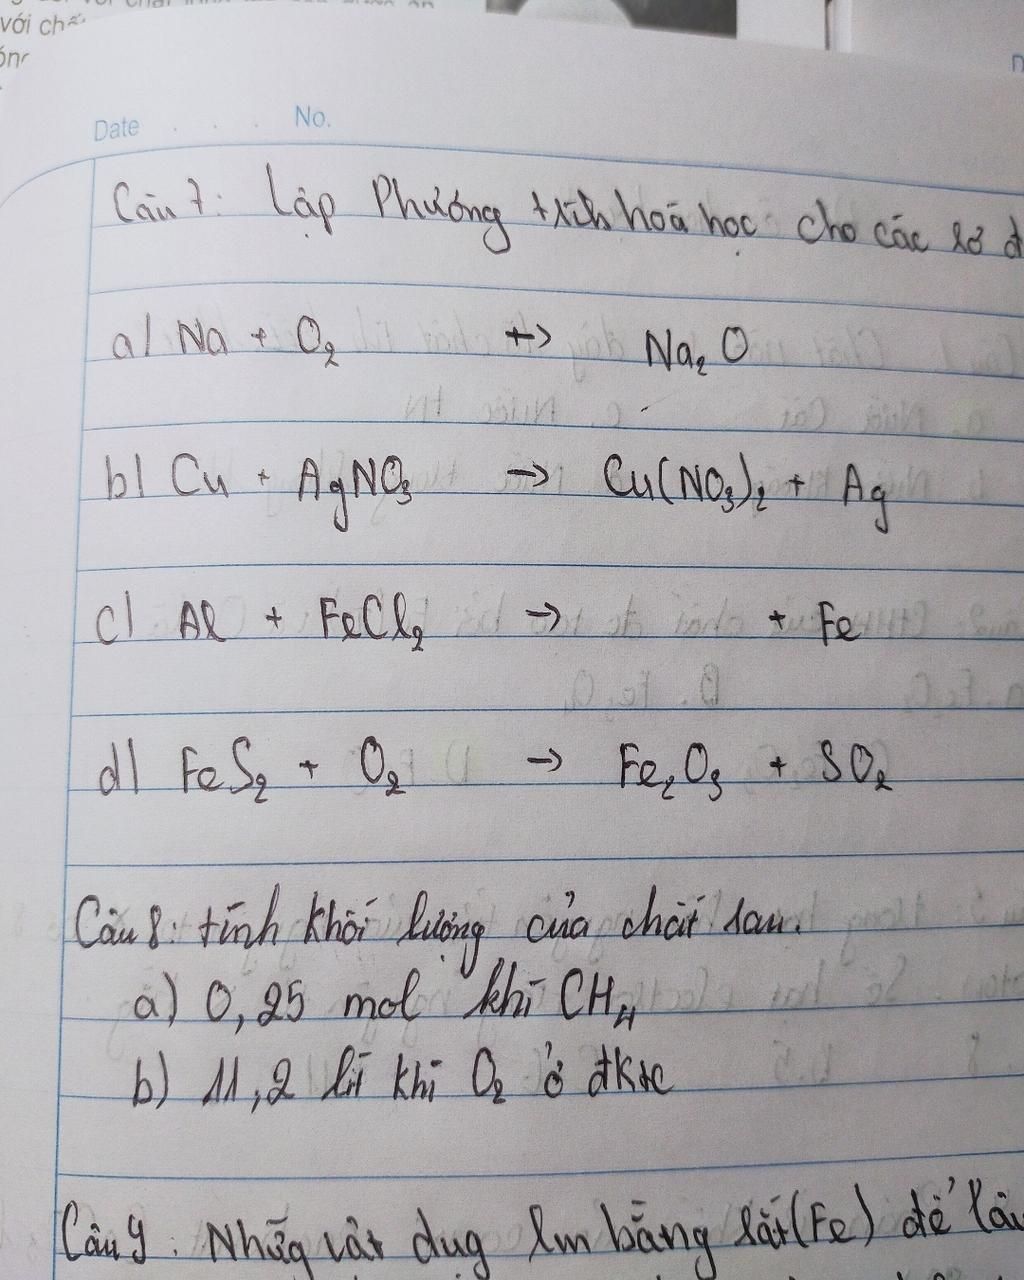 với chấ
Date No.
Câu 7: Lập Phương trình hoá học cho các sơ đ
a) Na + O₂ → Na₂O
b) Cu + AgNO₃ → Cu(NO₃)₂ + Ag
c) Al + FeCl₂ → + Fe
d) FeS₂ + O₂ → Fe₂O₃ + SO₂
Câu 8: tính khối lượng của chất sau.
a) 0,25 mol khí CH₄
b) 11,2 lít khí O₂ ở đktc
Câu 9: Nhữg vật dụg lm bằng sắt (Fe) để lâu